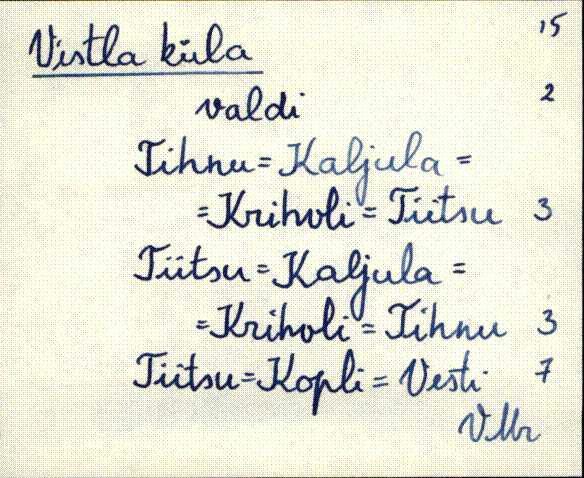 Vistla küla 15
valdi 2
Tihnu = Kaljula =
= Kriholi = Tiitsu 3
Tiitsu = Kaljula =
= Kriholi = Tihnu 3
Tiitsu = Kopli = Vesti 7
VMr